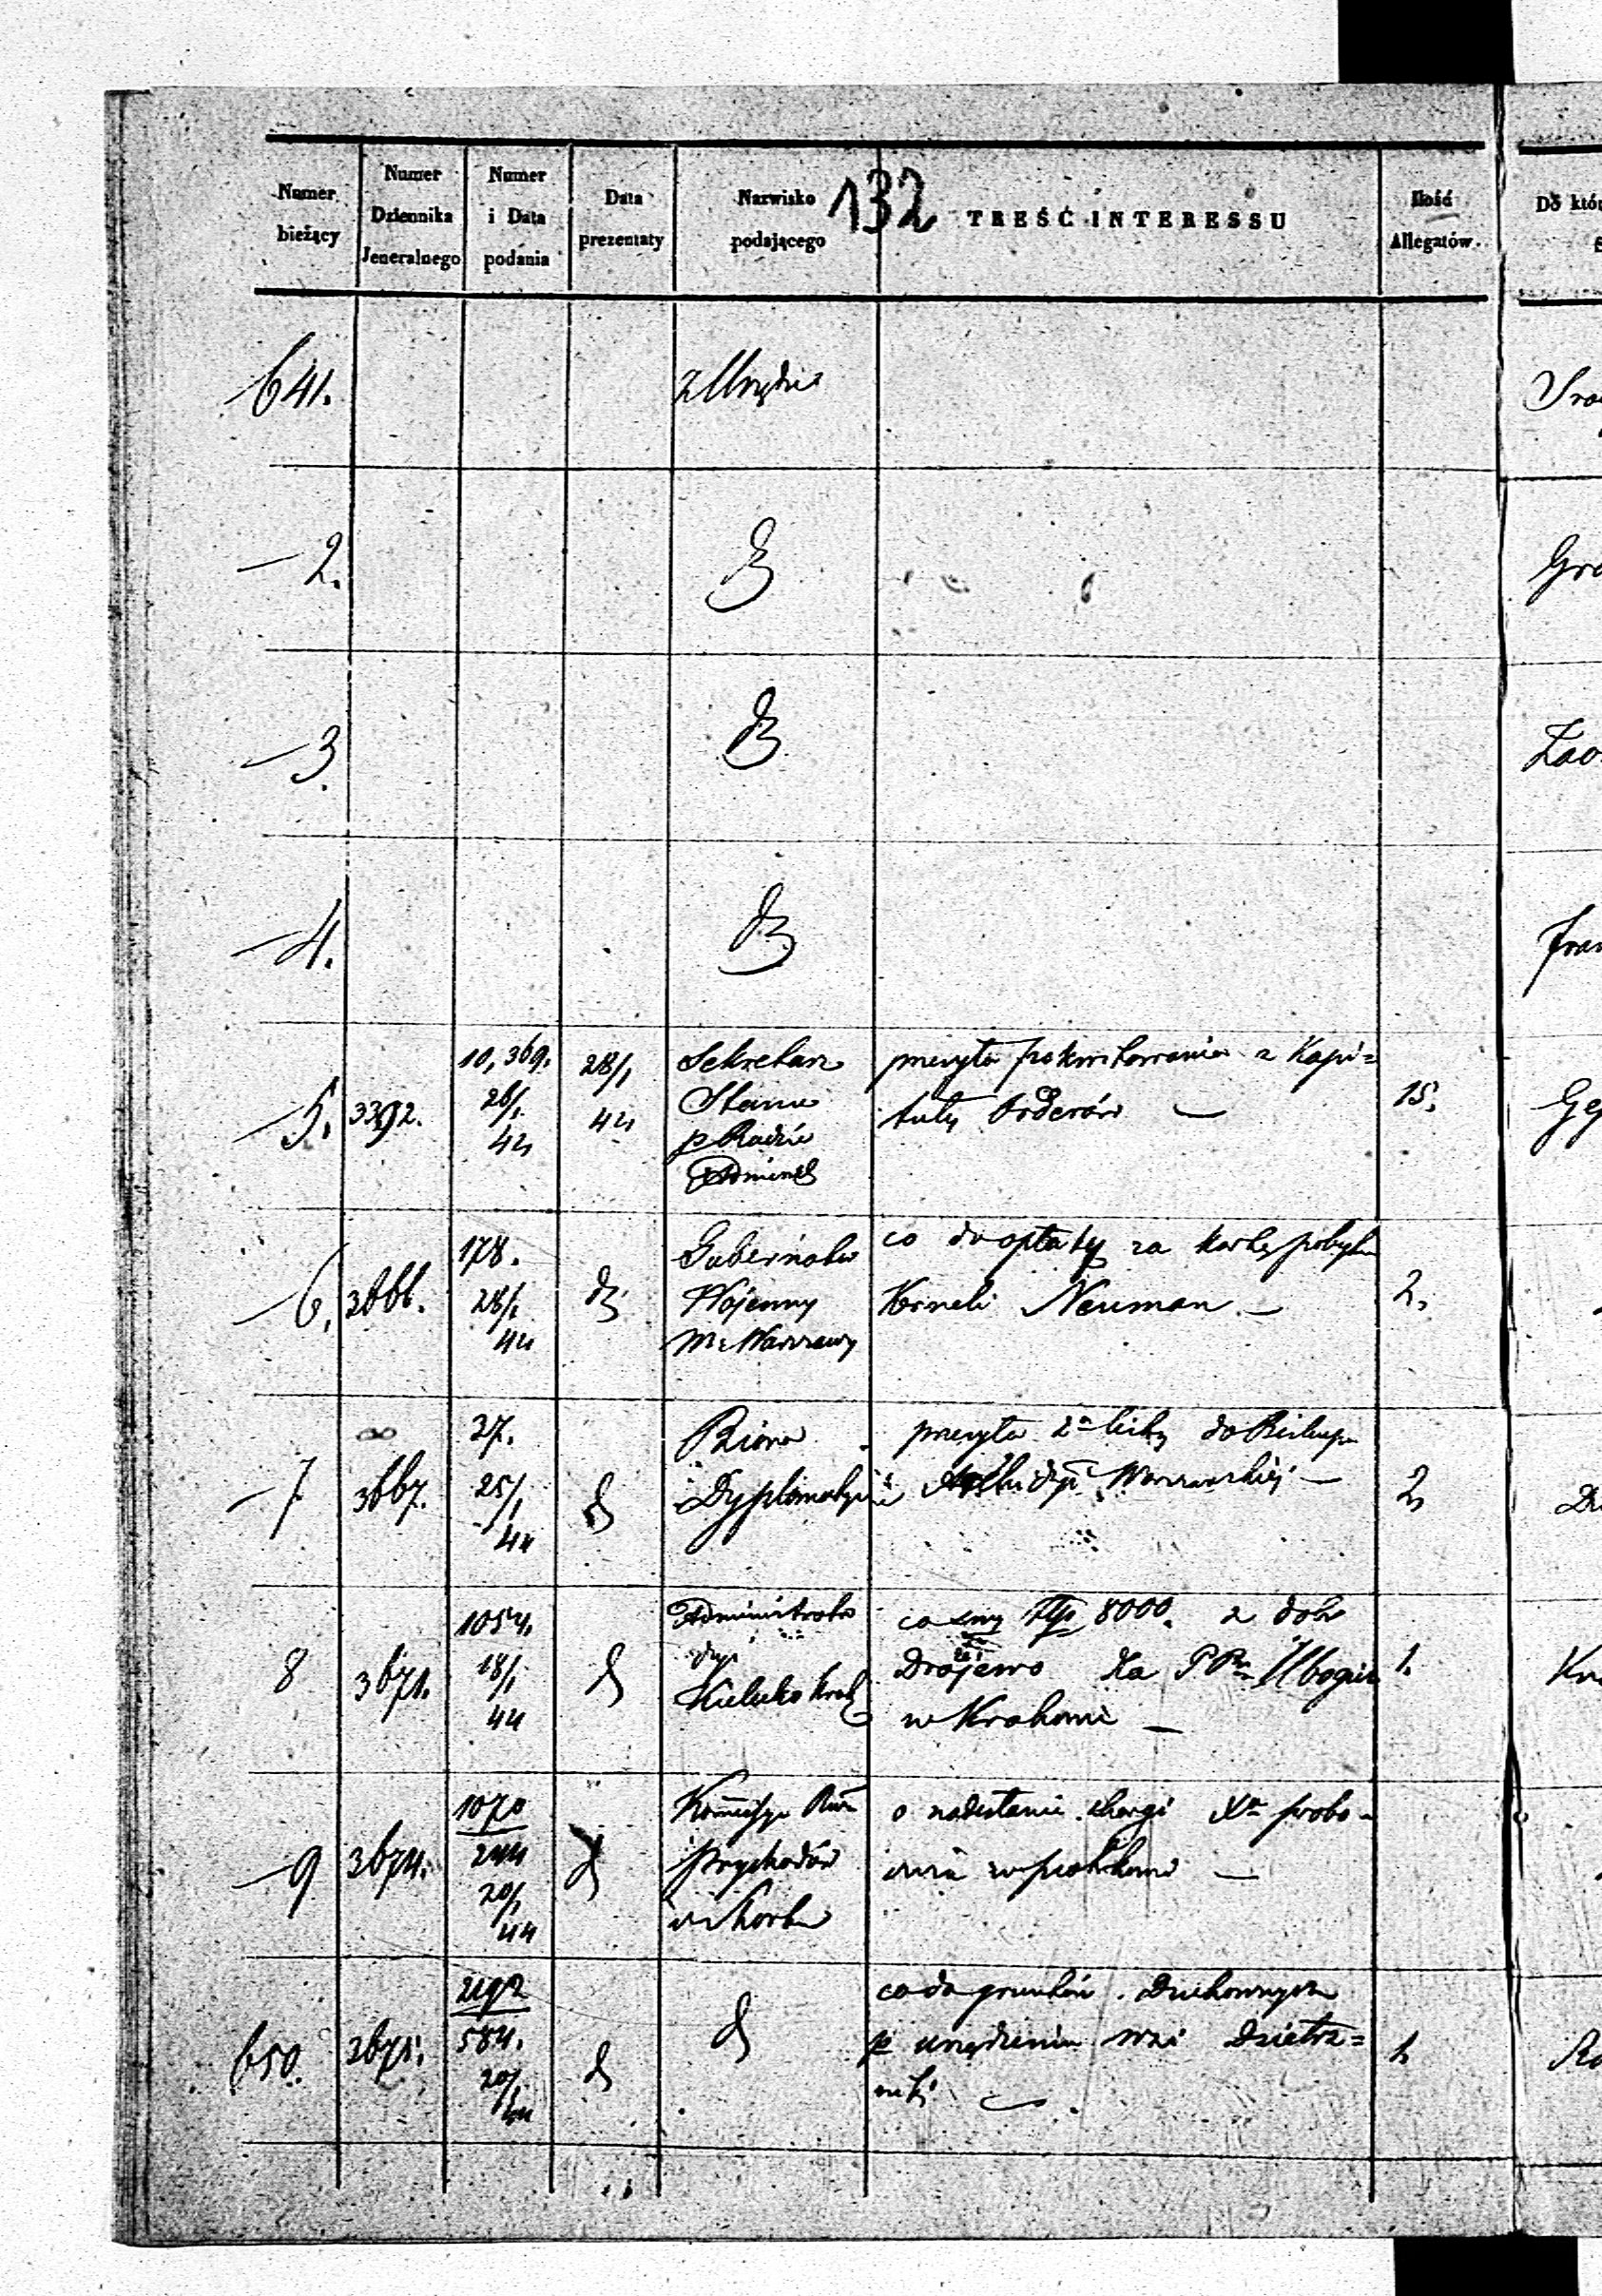 132
Numer bieżący
Numer Dziennika Jeneralnego
Numer i Data podania
Data prezentaty
Nazwisko podającego
TREŚĆ INTERESSU
Ilość Allegatów.
Do któr
641.
z Urzędu
Sro
— 2.
Gro
— 3.
Zao
— 4.
Fran
— 5. 3392.
10,369. 26/1 44
28/1 44
Sekretarz
Stanu
p Radzie
Adminis
przesyła pokwitowania z Kapi=
tuły Orderów —
15.
— 6. 3666.
178. 28/1 44
dº
Gubernator
Wojenny
m. Warszawy
co do opłaty za kartę pobytu
Korneli Neuman —
2.
— 7 3667.
37. 25/1 44
d
Biuro
Dyplomatycz
przesyła 2 listy do Biskupa
Warszawskiej —
2
8 3671.
1054. 18/1 44
d
Administrator
dyi
Kielecko Krak
co do sumy Złp 8000. z dóbr
Drojewo
w Krakowie —
1.
Kra
— 9 3674.
1070
244
20/1 44
d
Kommissya Rzą
Przychodów
i Skarbu
o nadesłanie skargi Xa probo=
—
650. 3675.
2192
584.
20/1 44
d
d
co do gruntów Duchownych
p urządzeniu wsi Dzietrz=
niki —
1.